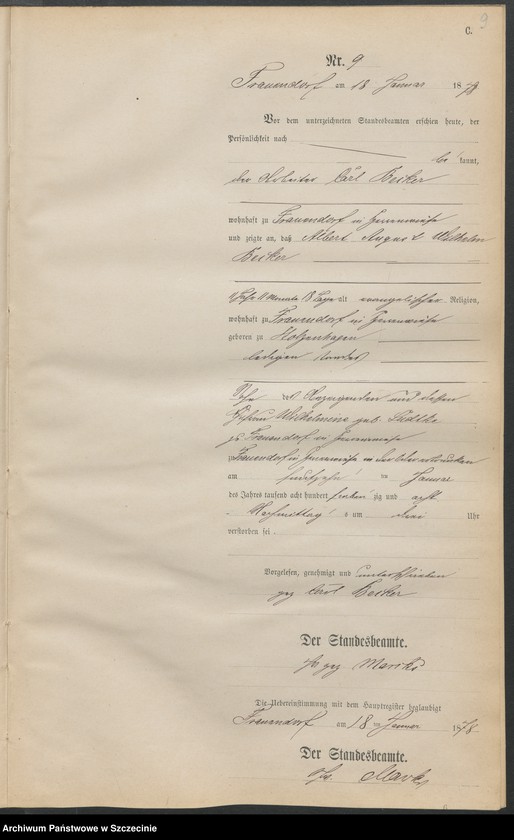 9
C.
Nr. 9
Frauendorf am 18 Januar 1878
Vor dem unterzeichneten Standesbeamten erschien heute, der
Persönlichkeit nach
be kannt,
der Arbeiter Carl Becker
wohnhaft zu Frauendorf in
und zeigte an, daß Albert August Wilhelm
Becker
Monate Tage alt evangelischer Religion,
wohnhaft zu Frauendorf in
geboren zu
ledigen Standes
Sohn des Anzeigenden und dessen
Ehefrau Wilhelmine geb.
zu Frauendorf in
zu Frauendorf in in der Oder ertrunken
am ten Januar
des Jahres tausend acht hundert sieben zig und acht
Nachmittags um drei Uhr
verstorben sei
Vorgelesen, genehmigt und unterschrieben
gez Carl Becker
Der Standesbeamte.
gez
Die Uebereinstimmung mit dem Hauptregister beglaubigt
Frauendorf am 18 ten Januar 1878
Der Standesbeamte.
Archiwum Państwowe w Szczecinie